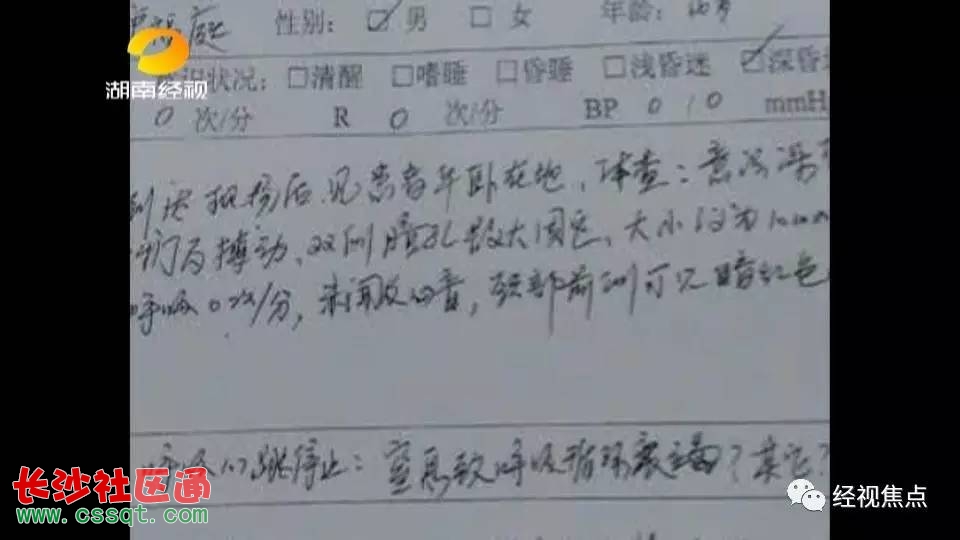 庭 性别: ☑男 □女 年龄:
湖南经视
识状况: □清醒 □嗜睡 □昏睡 □浅昏迷 ☑深昏
0 次/分 R 0 次/分 BP 0 / 0 mmH
到达现场后,见患者平卧在地、体查:意识
搏动、双侧瞳孔散大固定、大小约为10mm
呼吸0次/分,未闻及心音,颈部前侧可见暗红色
呼吸心跳停止: 窒息致呼吸循环衰竭? 其它?
长沙社区通
www.cssqt.com
经视焦点